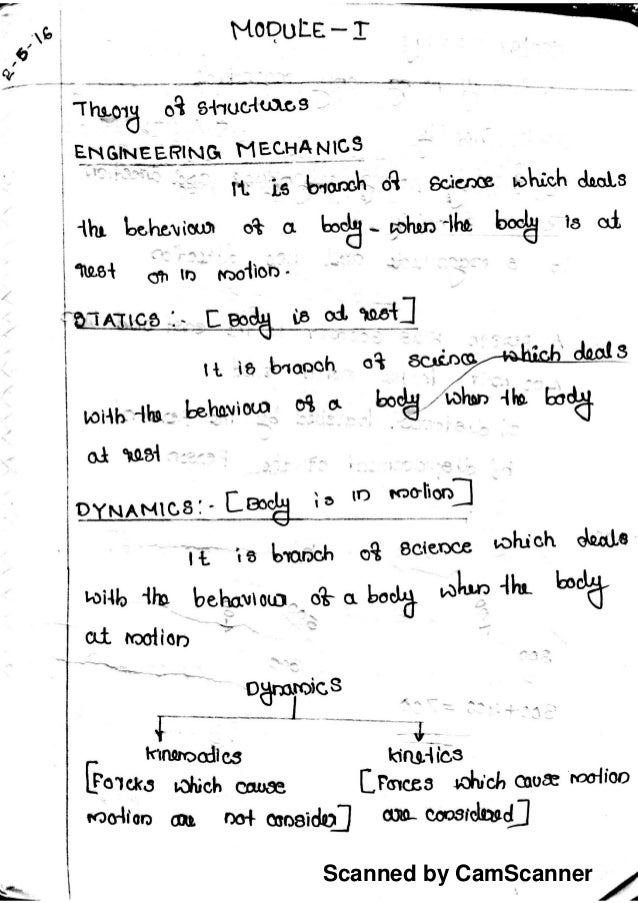 2-5-16
MODULE-I
Theory of structures
ENGINEERING MECHANICS
It is branch of science which deals
the beheviour of a body - when the body is at
rest or in motion.
STATICS :- [Body is at rest]
It is branch of science which deals
with the behaviour of a body when the body
at rest
DYNAMICS :- [Body is in motion]
It is branch of science which deals
with the behaviour of a body when the body
at motion
Dynamics
kinemadics kinetics
[Forcks which cause [Forces which cause motion
motion are not consider] are considered]
Scanned by CamScanner